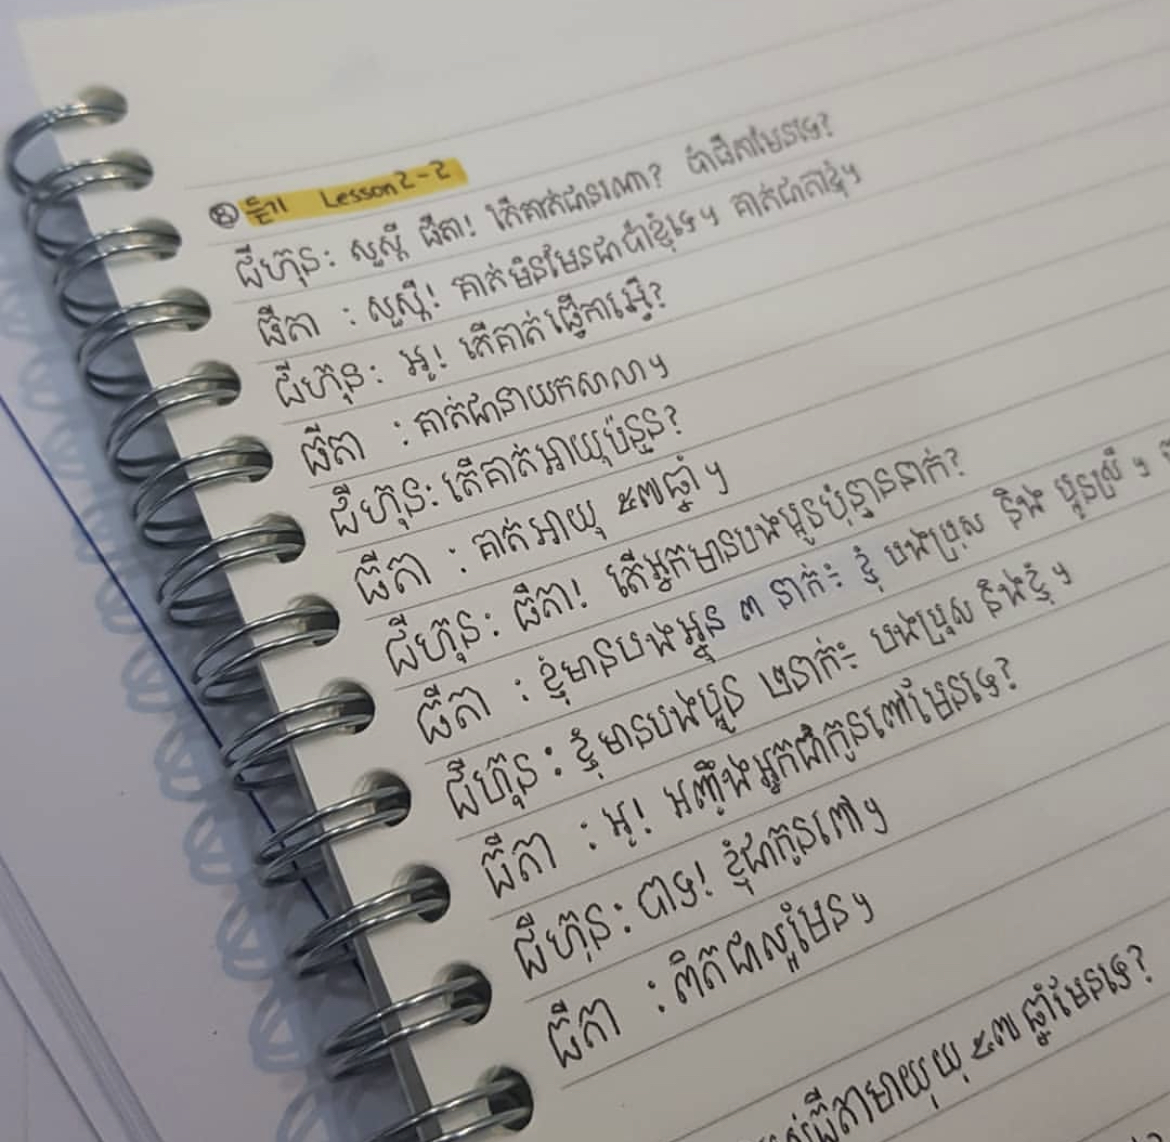 ② 듣기 Lesson 2-2
ជីហ៊ុន: សួស្តី ធីតា! តើគាត់ជានរណា? ប៉ាធីតាមែនទេ?
ធីតា : សួស្តី! គាត់មិនមែនជាប៉ាខ្ញុំទេ។ គាត់ជាតាខ្ញុំ។
ជីហ៊ុន: អូ! តើគាត់ធ្វើការអ្វី?
ធីតា : គាត់ជានាយកសាលា។
ជីហ៊ុន: តើគាត់អាយុប៉ុន្មាន?
ធីតា : គាត់អាយុ ៥៧ឆ្នាំ។
ជីហ៊ុន: ធីតា! តើអ្នកមានបងប្អូនប៉ុន្មាននាក់?
ធីតា : ខ្ញុំមានបងប្អូន ៣ នាក់៖ ខ្ញុំ បងប្រុស និង ប្អូនស្រី ។
ជីហ៊ុន: ខ្ញុំមានបងប្អូន ២នាក់៖ បងប្រុស និងខ្ញុំ។
ធីតា : អូ! អញ្ចឹងអ្នកជាកូនពៅមែនទេ?
ជីហ៊ុន: បាទ! ខ្ញុំជាកូនពៅ។
ធីតា : ពិតជាល្អមែន។
ធីតាអាយុយុ ៥៧ ឆ្នាំមែនទេ?